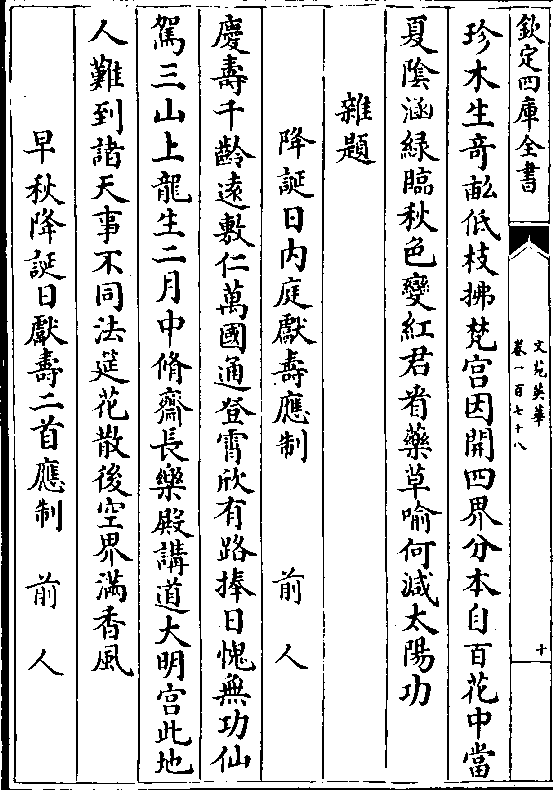 欽定四庫全書
文苑英華
卷一百七十八
十
珍木生奇畝低枝拂梵宫因開四界分本自百花中當
夏隂涵緑臨秋色變紅君看藥草喻何減太陽功
雜題
降誕日内庭獻壽應制　前人
慶壽千齡逺敷仁萬國通登霄欣有路捧日愧無功仙
駕三山上龍生二月中脩齋長樂殿講道大明宫此地
人難到諸天事不同法筵花散後空界滿香風
早秋降誕日獻壽二首應制　前人